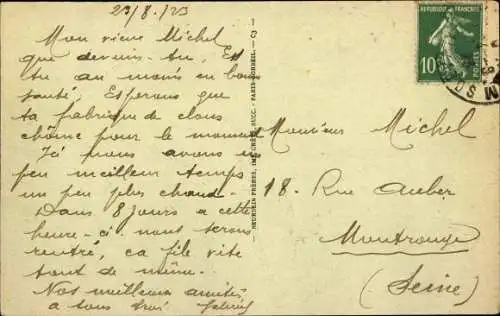 23/8/23
Mon vieux Michel
que deviens-tu, Es
tu au moins en bonne
santé, Esperons que
ta fabrique de clous
chôme pour le moment
Ici nous avons un
peu meilleur temps
un peu plus chaud -
Dans 8 jours a cette
heure-ci nous serons
rentré, ca file vite
tout de même.
Nos meilleurs amitiés
a tous trois
NEURDEIN FRÈRES, SUCC. - PARIS-CORBEIL
REPUBLIQUE FRANÇAISE
10
POSTES
Monsieur Michel
18. Rue Auber
Montrouge
(Seine)